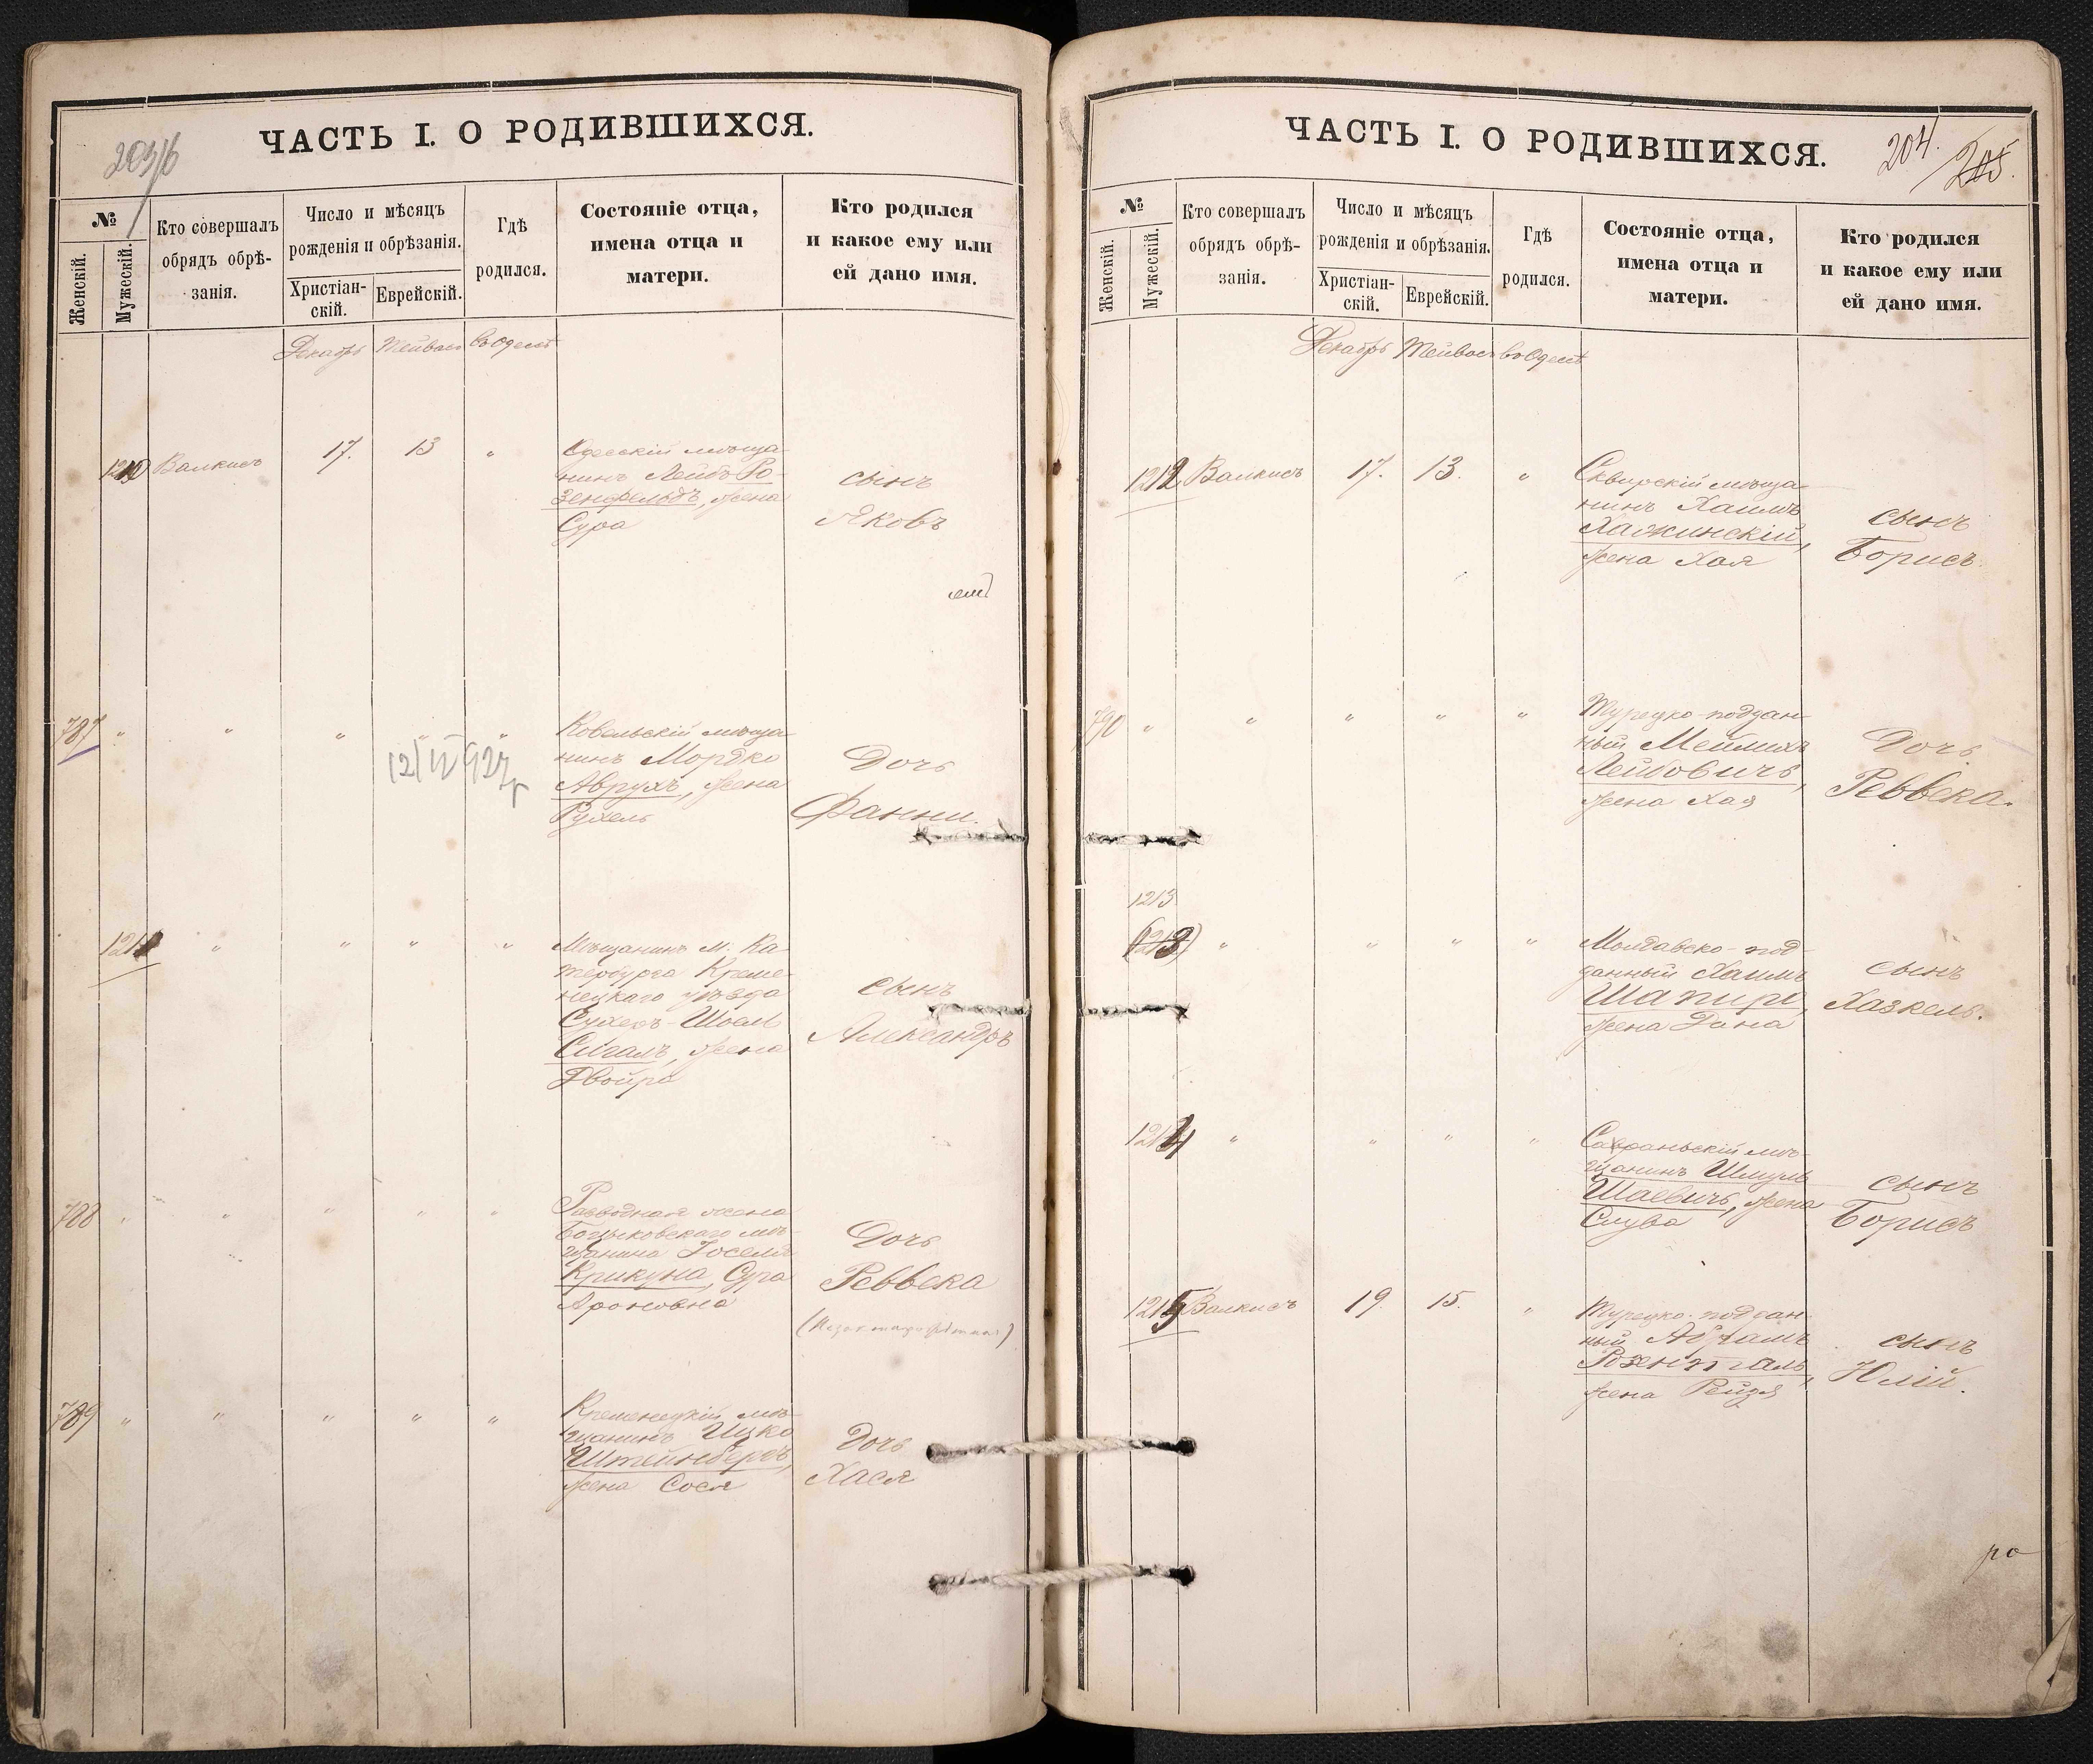 203/б
ЧАСТЬ I. О РОДИВШИХСЯ.
№
Женскій.
Мужескій.
Кто совершалъ
обрядъ обрѣ-
занія.
Число и мѣсяцъ
рожденія и обрѣзанія.
Христіан-
скій.
Еврейскій.
Гдѣ
родился.
Состояніе отца,
имена отца и
матери.
Кто родился
и какое ему или
ей дано имя.
Декабрь Тейвасъ въ Одессѣ
1210 Валкисъ 17. 13 "
Одесскій мѣща-
нинъ Лейбъ Ро-
зенфельдъ, жена
Сура
сынъ
Яковъ
787 " " " " "
Ковельскій мѣща-
нинъ Мордко
Аврухъ, жена
Рухель
Дочь
Фанни.
12/IV 927 г
1211 " " " "
Мѣщанинъ м. Ка-
тербурга Креме-
нецкаго уѣзда
Сухеръ-Шоель
Сигалъ, жена
Двойра
сынъ
Александръ
788 " " " " "
Разводная жена
мѣ-
щанина Іоселя
Крикуна, Сура
Ароновна
Дочь
Реввека
789 " " " " "
Кременецкій мѣ-
щанинъ Ицко
Штейнбергъ,
жена Сося
Дочь
Хася
ЧАСТЬ I. О РОДИВШИХСЯ.
204.
205.
№
Женскій.
Мужескій.
Кто совершалъ
обрядъ обрѣ-
занія.
Число и мѣсяцъ
рожденія и обрѣзанія.
Христіан-
скій.
Еврейскій.
Гдѣ
родился.
Состояніе отца,
имена отца и
матери.
Кто родился
и какое ему или
ей дано имя.
Декабрь Тейвасъ въ Одессѣ
1212 Валкисъ 17. 13. "
Сквирскій мѣща-
нинъ Хаимъ
Хажинскій,
жена Хая
сынъ
Борисъ.
790 " " " " "
Турецко-поддан-
ный Меилихъ
Лейбовичъ,
жена Хая
Дочь
Реввека.
1213
" " " "
Молдавско-под-
данный Хаимъ
Шапиро,
жена Дина
сынъ
Хазкель.
1214 " " " "
Савраньскій мѣ-
щанинъ Шмуль
Шаевичъ, жена
Слува
сынъ
Борисъ
1215 Валкисъ 19. 15. "
Турецко-поддан-
ный Абрамъ
Розенталь,
жена Рейзя
сынъ
Юлій.